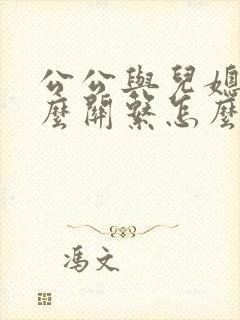 公公與兒媳
麼關繫怎麼
馮文